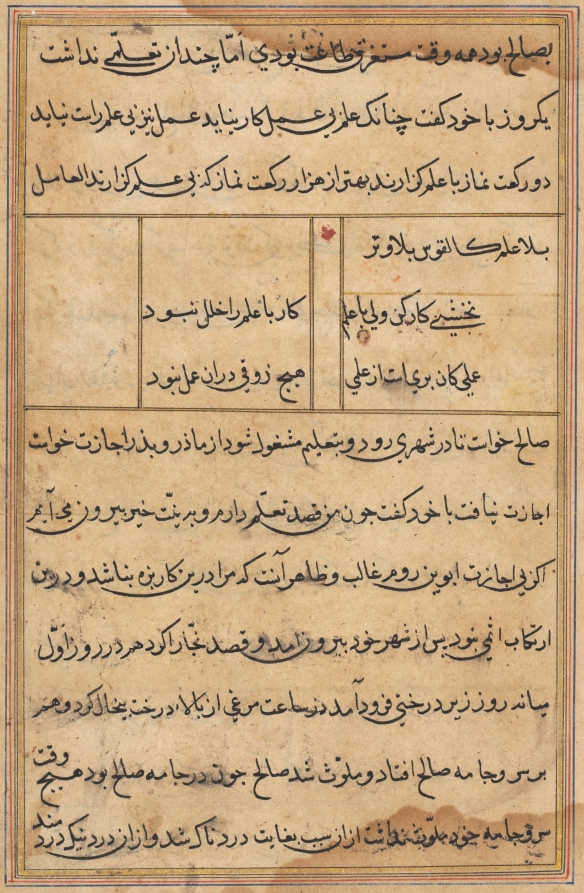 بصالح بود همه وقت مستغرق طاعت بودي امّا چندان تعلّمي نداشت
يكروز با خود گفت چنانك علم بي عمل كار نيايد عمل نيز بي علم راست نيايد
دو ركعت نماز با علم گزارند بهتر از هزار ركعت نماز كه بي علم گزارند العامل
بلا علم كالقوس بلا وتر
نخشبي كار كن ولي با علم
كار با علم را خلل نبود
علي كان بري است از علي
هيچ ذوقي در ان عمل نبود
صالح خواست تا در شهري رود و بتعليم مشغول شود از ماذر و پذر اجازت خواست
اجازت نيافت با خود گفت چون من قصد تعلّم دارم و به نيّت خير بيرون مي آيم
اگر بي اجازت ابوين روم غالب و ظاهر آنست كه مرا درين كار بزه نباشد و درين
ارتكاب اثمي نبود پس از شهر خود بيرون امد و قصد كرد هم در روز اوّل
ميانه روز زير درختي فرود آمد در ساعت مرغي از بالاء درخت پيخال كرد و هم
بر سر و جامه صالح افتاد و ملوّث شد صالح چون در جامه صالح بود هيچ وقت
سر و جامه خود ملوّث نداشت از ان سبب بغايت دردناك شد و از ان درد نيك دردمند